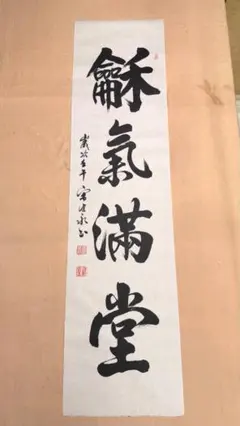 龢氣滿堂
歲次壬午